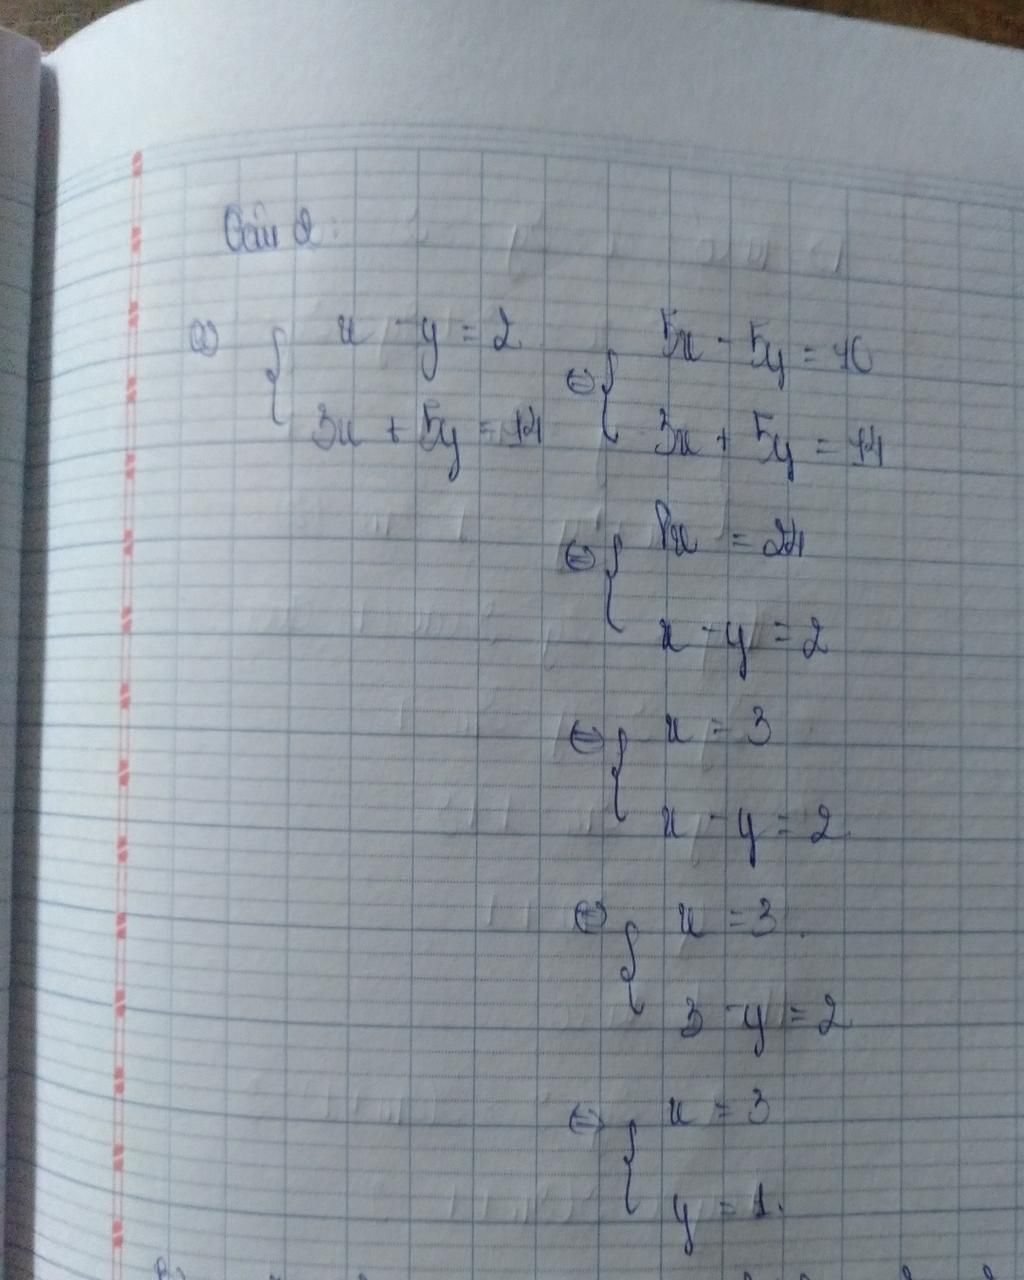 Bài 2:
a) { x - y = 2 ⇔ { 5x - 5y = 10
3x + 5y = 14 3x + 5y = 14
⇔ { 8x = 24
x - y = 2
⇔ { x = 3
x - y = 2
⇔ { x = 3
3 - y = 2
⇔ { x = 3
y = 1.